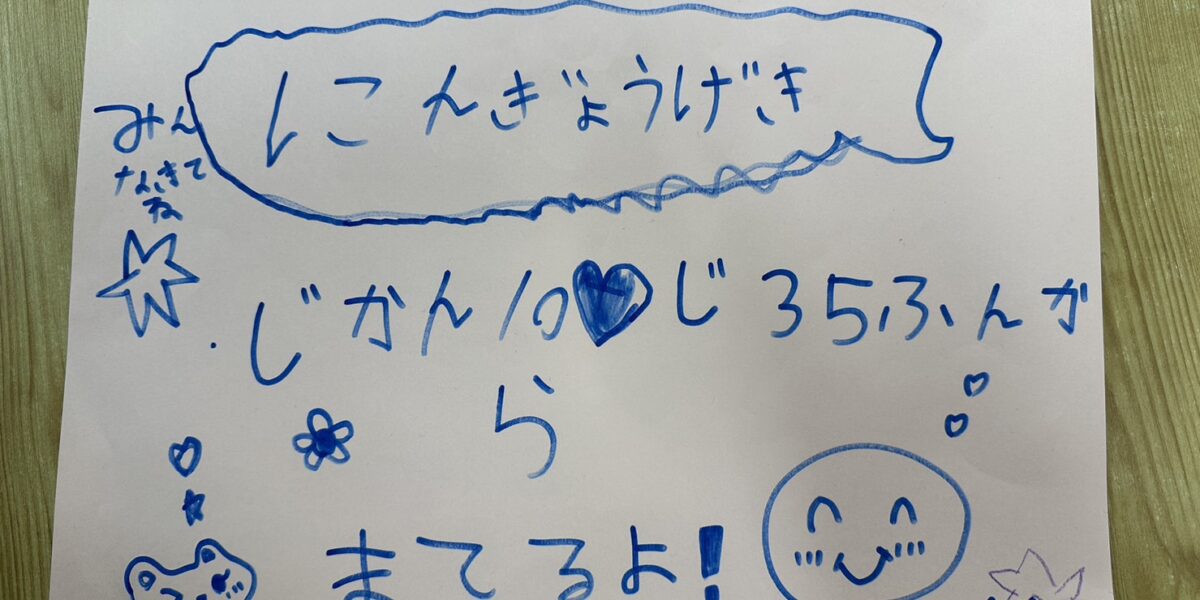 にんぎょうげき
みん
なきて
ね
じかん10じ35ふんか
ら
まてるよ!